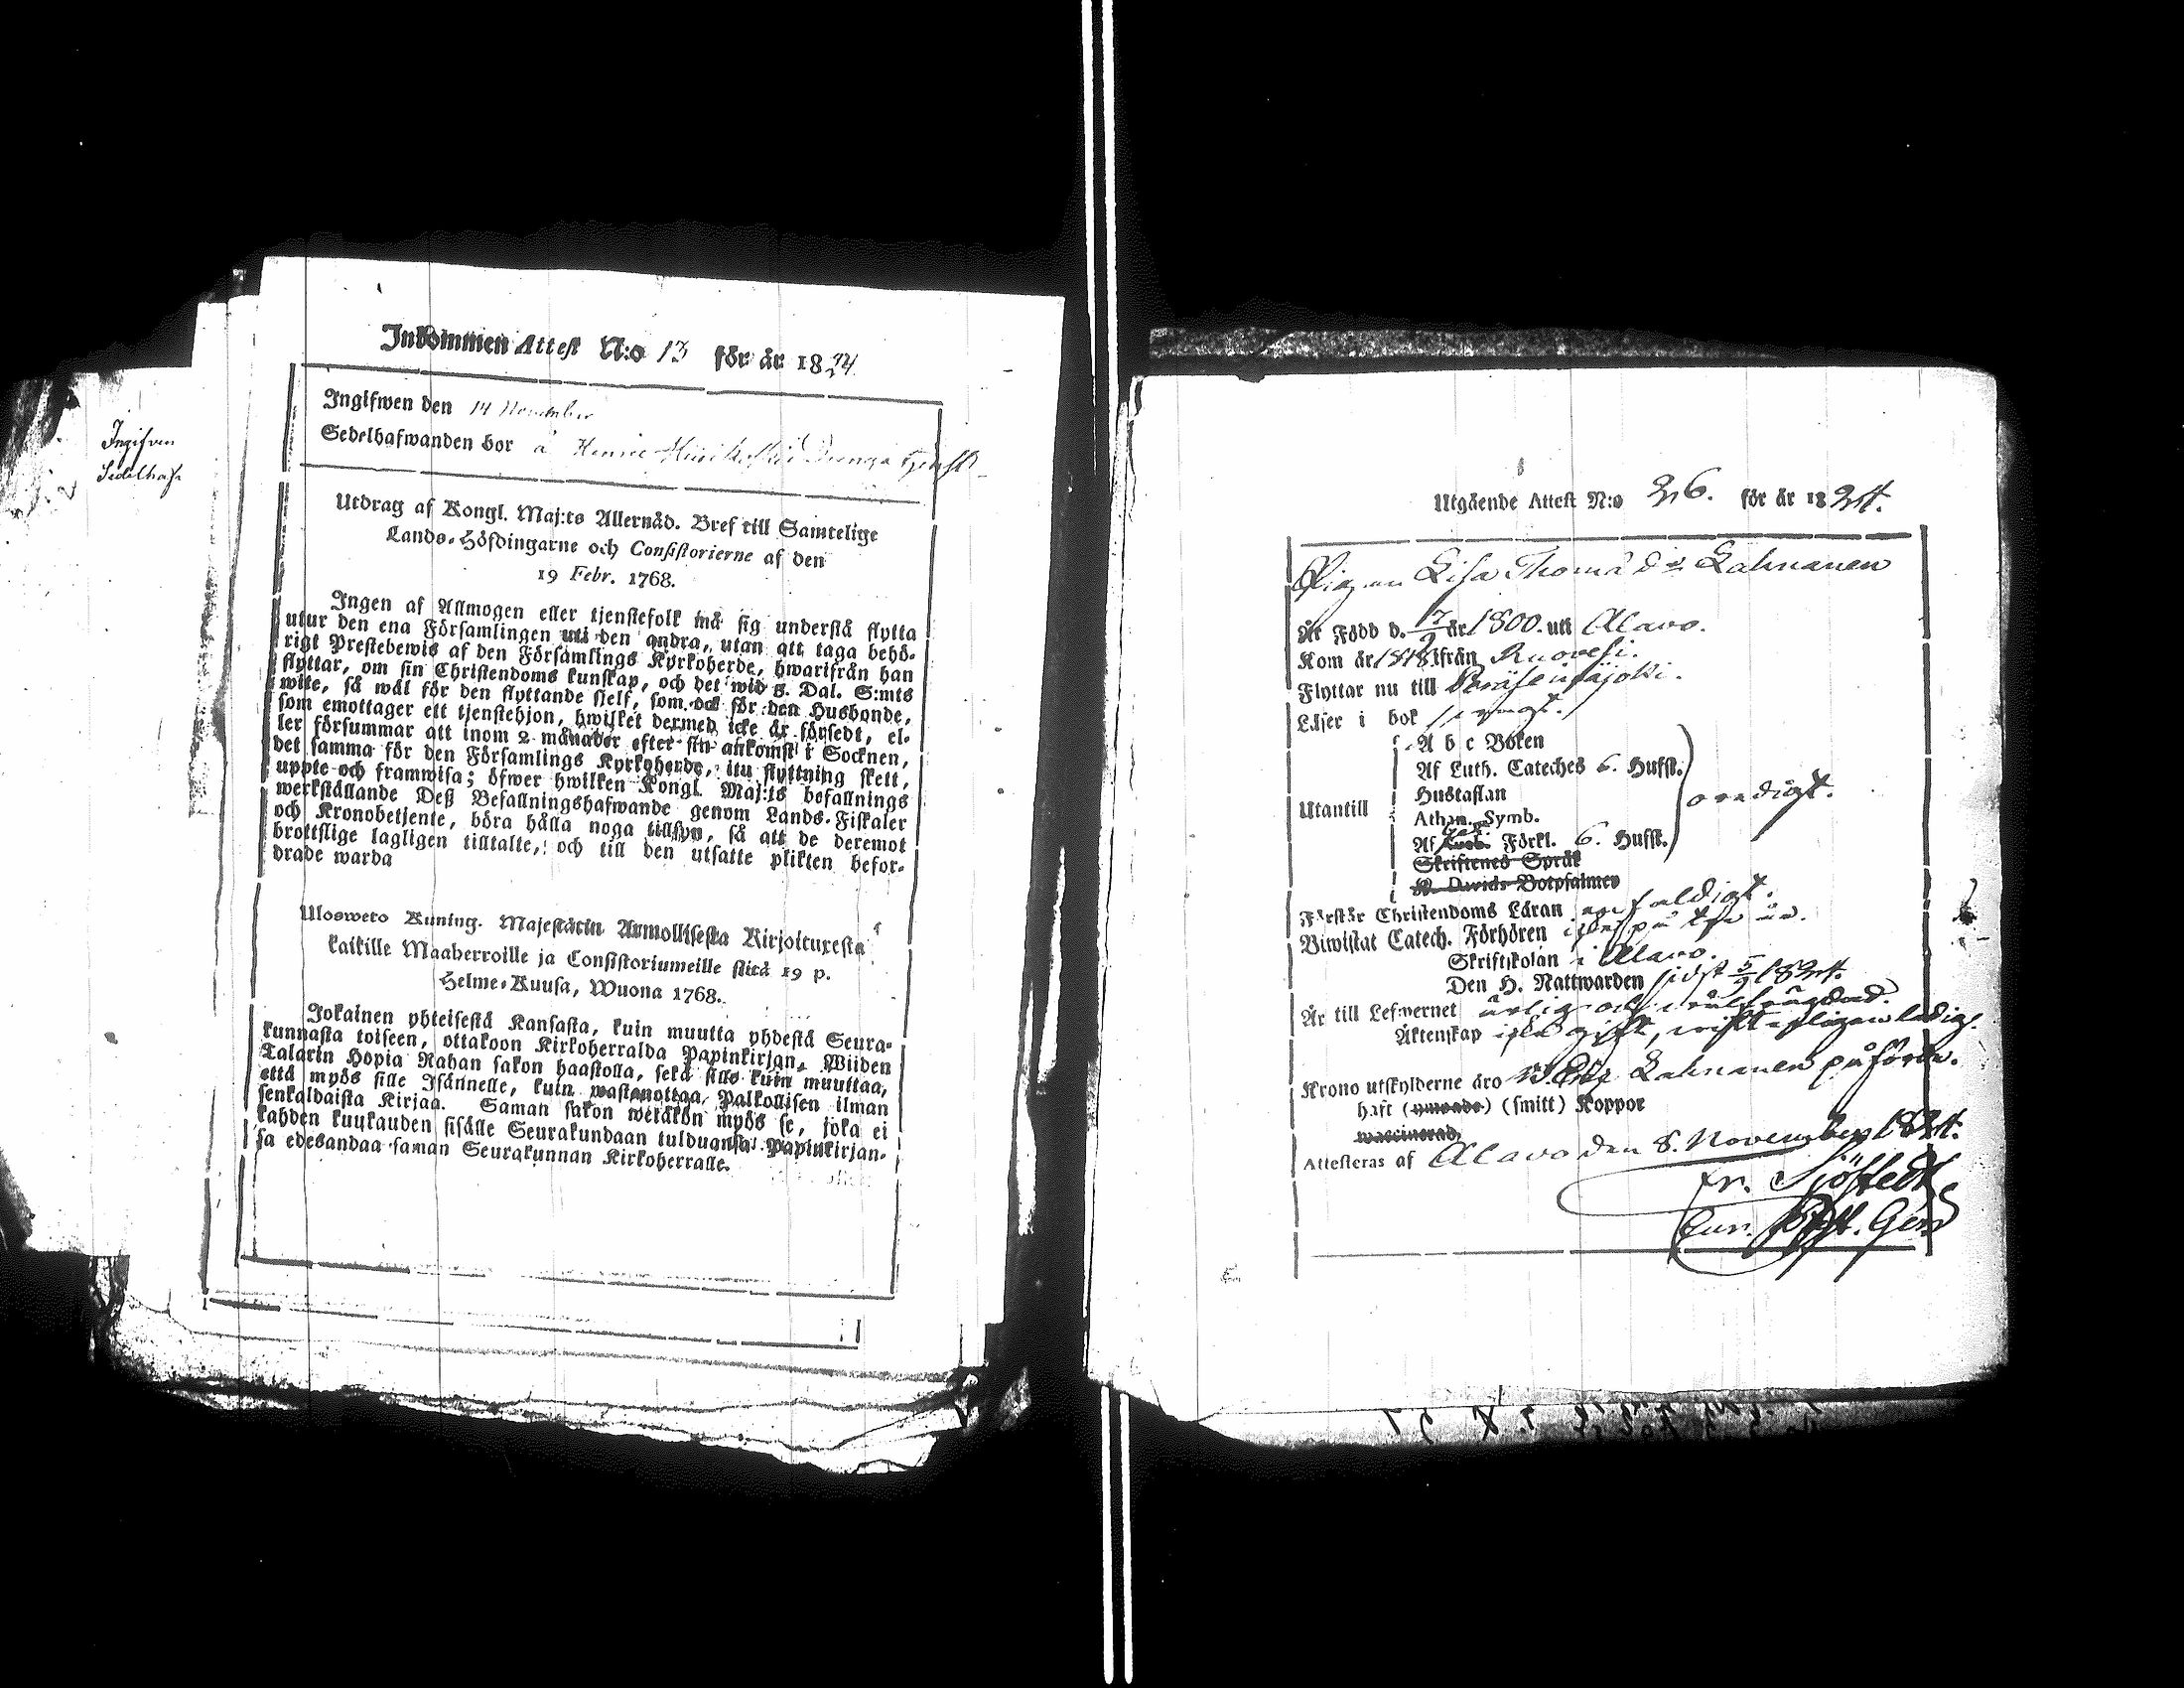 Inkommen Attest N:o 13 för år 1824
Ingifwen den 14 November
Sedelhafwanden bor å
Ingifven
Sedelhafv
Utdrag af Kongl. Maj:ts Allernåd. Bref till Samtelige
Lands-Höfdingarne och Consistorierne af den
19 Febr. 1768.
Ingen af Allmogen eller tjenstefolk må sig understå flytta
utur den ena Församlingen uti den andra, utan att taga behö-
rigt Prestebewis af den Församlings Kyrkoherde, hwarifrån han
flyttar, om sin Christendoms kunskap, och det wid 5. Dal. S:mts
wite, så wäl för den flyttande sjelf, som ock för den Husbonde,
som emottager ett tjenstehjon, hwilket dermed icke är försedt, el-
ler försummar att inom 2 månader efter sin ankomst i Socknen,
det samma för den Församlings Kyrkoherde, itu flyttning skett,
uppte och framwisa; öfwer hwilken Kongl. Maj:ts befallnings
werkställande Deß Befallningshafwande genom Lands-Fiskaler
och Kronobetjente, böra hålla noga tillsyn, så att de deremot
brottslige lagligen tilltalte, och till den utsatte plikten befor-
drade warda
Ulosweto Kuning. Majestätin Armollisesta Kirjoituxesta
kaikille Maaherroille ja Consistoriumeille siitä 19 p.
Helme-Kuusa, Wuona 1768.
Jokainen yhteisestä Kansasta, kuin muutta yhdestä Seura-
kunnasta toiseen, ottakoon Kirkoherralda Papinkirjan, Wiiden
Talarin Hopia Rahan sakon haastolla, sekä sille kuin muuttaa,
että myös sille Isännelle, kuin wastanottaa Palkollisen ilman
senkaldaista Kirjaa. Saman sakon wetäkön myös se, joka ei
kahden kuukauden sisälle Seurakundaan tulduansa Papinkirjan-
sa edesandaa saman Seurakunnan Kirkoherralle.
Utgående Attest N:o 26. för år 1824.
Pigan Lisa Thomä dr Lahnanen
Är Född d. 7/9 år 1800. uti Alavo.
Kom år 1818 från Ruovesi.
Flyttar nu till Peräseinäjoki.
Läser i bok
A b c Boken
Af Luth. Cateches 6. Hufst.
Hustaflan
Utantill
Athan. Symb.
Af Förkl. 6. Hufst.
oredigt.
Skriftenes Språk
K. Davids Botpsalmer
Förstår Christendoms Läran enfaldigt.
Biwistat Catech. Förhören ej på två år.
Skriftskolan i Alavo.
Den H. Nattwarden sidst 5/9 1824.
Är till Lefwernet ärlig och välfrägdad.
Äktenskap icke gift, ledig.
Krono utskylderne äro Lahnanen påförde.
haft (ympade) (smitt) Koppor
waccinerad,
Attesteras af Alavo den 8. November 1824.
Fr. Sjöstedt